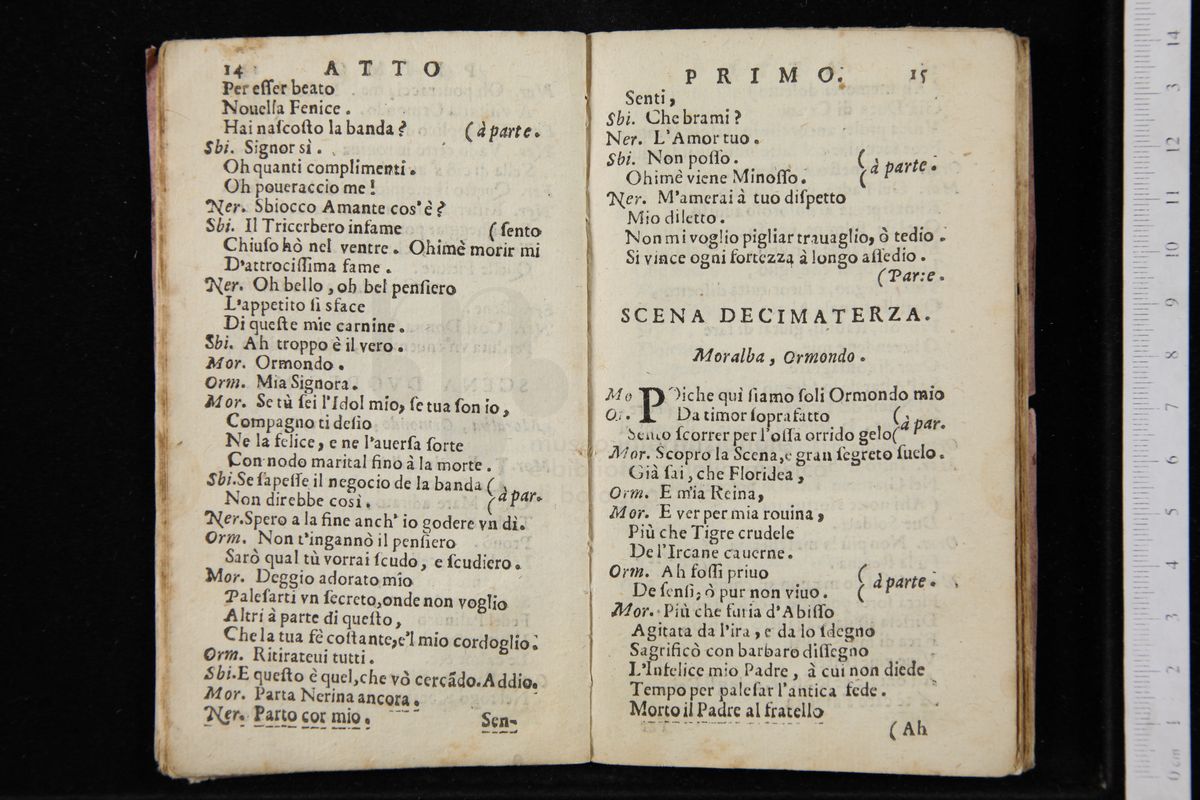 14 ATTO
Per eſſer beato
Nouella Fenice.
Hai naſcoſto la banda? (à parte.
Sbi. Signor sì.
Oh quanti complimenti.
Oh poueraccio me!
Ner. Sbiocco Amante cos'è?
Sbi. Il Tricerbero infame (ſento
Chiuſo hò nel ventre. Ohimè morir mi
D'attrociſſima fame.
Ner. Oh bello, oh bel penſiero
L'appetito ſi sface
Di queſte mie carnine.
Sbi. Ah troppo è il vero.
Mor. Ormondo.
Orm. Mia Signora.
Mor. Se tù ſei l'Idol mio, ſe tua ſon io,
Compagno ti deſio
Ne la felice, e ne l'auerſa ſorte
Con nodo marital fino à la morte.
Sbi. Se ſapeſſe il negocio de la banda (
Non direbbe così. (à par.
Ner. Spero a la fine anch' io godere vn dì.
Orm. Non t'ingannò il penſiero
Sarò qual tù vorrai ſcudo, e ſcudiero.
Mor. Deggio adorato mio
Paleſarti vn ſecreto, onde non voglio
Altri à parte di queſto,
Che la tua fè coſtante, e'l mio cordoglio.
Orm. Ritirateui tutti.
Sbi. E queſto è quel, che vò cercãdo. Addio.
Mor. Parta Nerina ancora.
Ner. Parto cor mio.
Sen-
PRIMO. 15
Senti,
Sbi. Che brami?
Ner. L'Amor tuo.
Sbi. Non poſſo. (
Ohimè viene Minoſſo. (à parte.
Ner. M'amerai à tuo diſpetto
Mio diletto.
Non mi voglio pigliar trauaglio, ò tedio.
Si vince ogni fortezza à longo aſſedio.
(Parte.
SCENA DECIMATERZA.
Moralba, Ormondo.
Mo POiche quì ſiamo ſoli Ormondo mio
Or. Da timor ſoprafatto (
Sento ſcorrer per l'oſſa orrido gelo (à par.
Mor. Scopro la Scena, e gran ſegreto ſuelo.
Già ſai, che Floridea,
Orm. E mia Reina,
Mor. E ver per mia rouina,
Più che Tigre crudele
De l'Ircane cauerne.
Orm. Ah foſſi priuo (
De ſenſi, ò pur non viuo. (à parte.
Mor. Più che furia d'Abiſſo
Agitata da l'ira, e da lo ſdegno
Sagrificò con barbaro diſſegno
L'Infelice mio Padre, à cui non diede
Tempo per paleſar l'antica fede.
Morto il Padre al fratello
(Ah